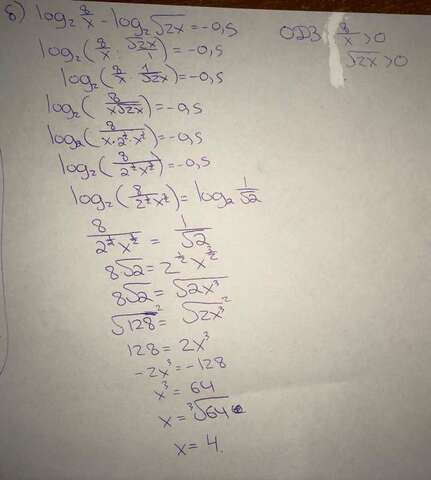 б) log₂ 8/x - log₂√2x = -0,5
ОДЗ: 8/x > 0
√2x > 0
log₂(8/x : √2x/1) = -0,5
log₂(8/x · 1/√2x) = -0,5
log₂(8/x√2x) = -0,5
log₂(8/x·2^½·x^½) = -0,5
log₂(8/2^½x^½) = -0,5
log₂(8/2^½x^½) = log₂ 1/√2
8/2^½x^½ = 1/√2
8√2 = 2^½ x^3/2
8√2 = √2x³
√128² = √2x³²
128 = 2x³
-2x³ = -128
x³ = 64
x = ³√64
x = 4.